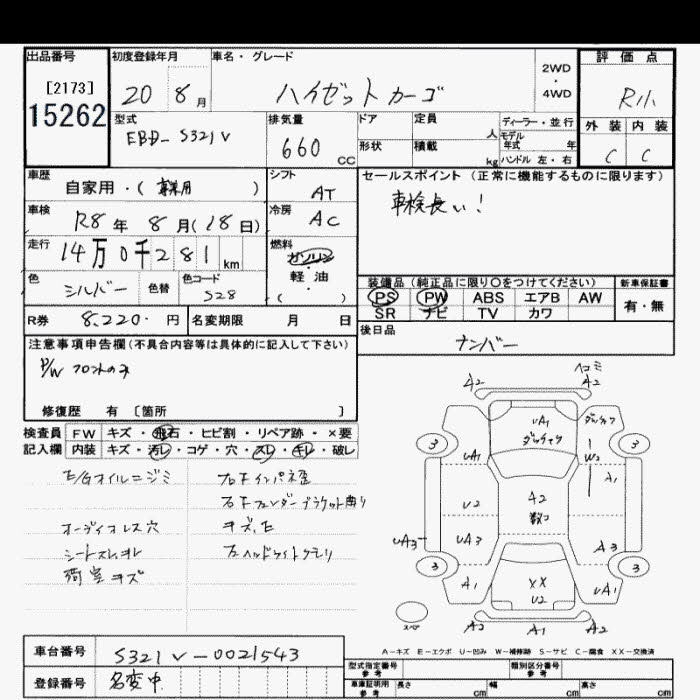 出品番号 初度登録年月 車名・グレード 評価点
[2173]
15262
20 8月 ハイゼットカーゴ 2WD・4WD R小
型式 排気量 ドア 定員 人 ディーラー・並行 外装 内装
EBD-S321V 660 CC 形状 積載 kg モデル年式 年 ハンドル 左・右 C C
車歴 シフト セールスポイント (正常に機能するものに限ります)
自家用・( ) AT 車検長い!
車検 R8年 8月(18日) 冷房 AC
走行 14万0千281km 燃料 ガソリン・軽油 ( )
色 シルバー 色替 色コード S28
装備品 (純正品に限り〇をつけてください) 新車保証書
PS PW ABS エアB AW 有・無
SR ナビ TV カワ
R券 8,220.円 名変期限 月 日 後日品
ナンバー
注意事項申告欄(不具合内容等は具体的に記入して下さい)
P/W フロントのみ
修復歴 有 [箇所 ]
検査員 FW キズ・飛石・ヒビ割・リペア跡・×要
記入欄 内装 キズ・汚レ・コゲ・穴・スレ・キレ・破レ
E/Gオイルニジミ
右Fインパネ歪
右Fフェンダーブラケット曲り
オーディオレス穴 キズ、E
シートスレ、ヨレ
荷室キズ
A2 ヘコミ A2
UA1 ダンチヤク
3 3
UA1 W2 A1
U2 A2 数コ
UA3 UA3 A3
3 3
A1 XX U2 UA1
スペア A2 A1 A2
A-キズ E-エクボ U-凹み W-補修跡 S-サビ C-腐食 XX-交換済
車台番号 S321V-0021543
登録番号 名変中
型式指定番号 参考 類別区分番号 参考
車庫証明用 参考 長さ cm 幅 cm 高さ cm